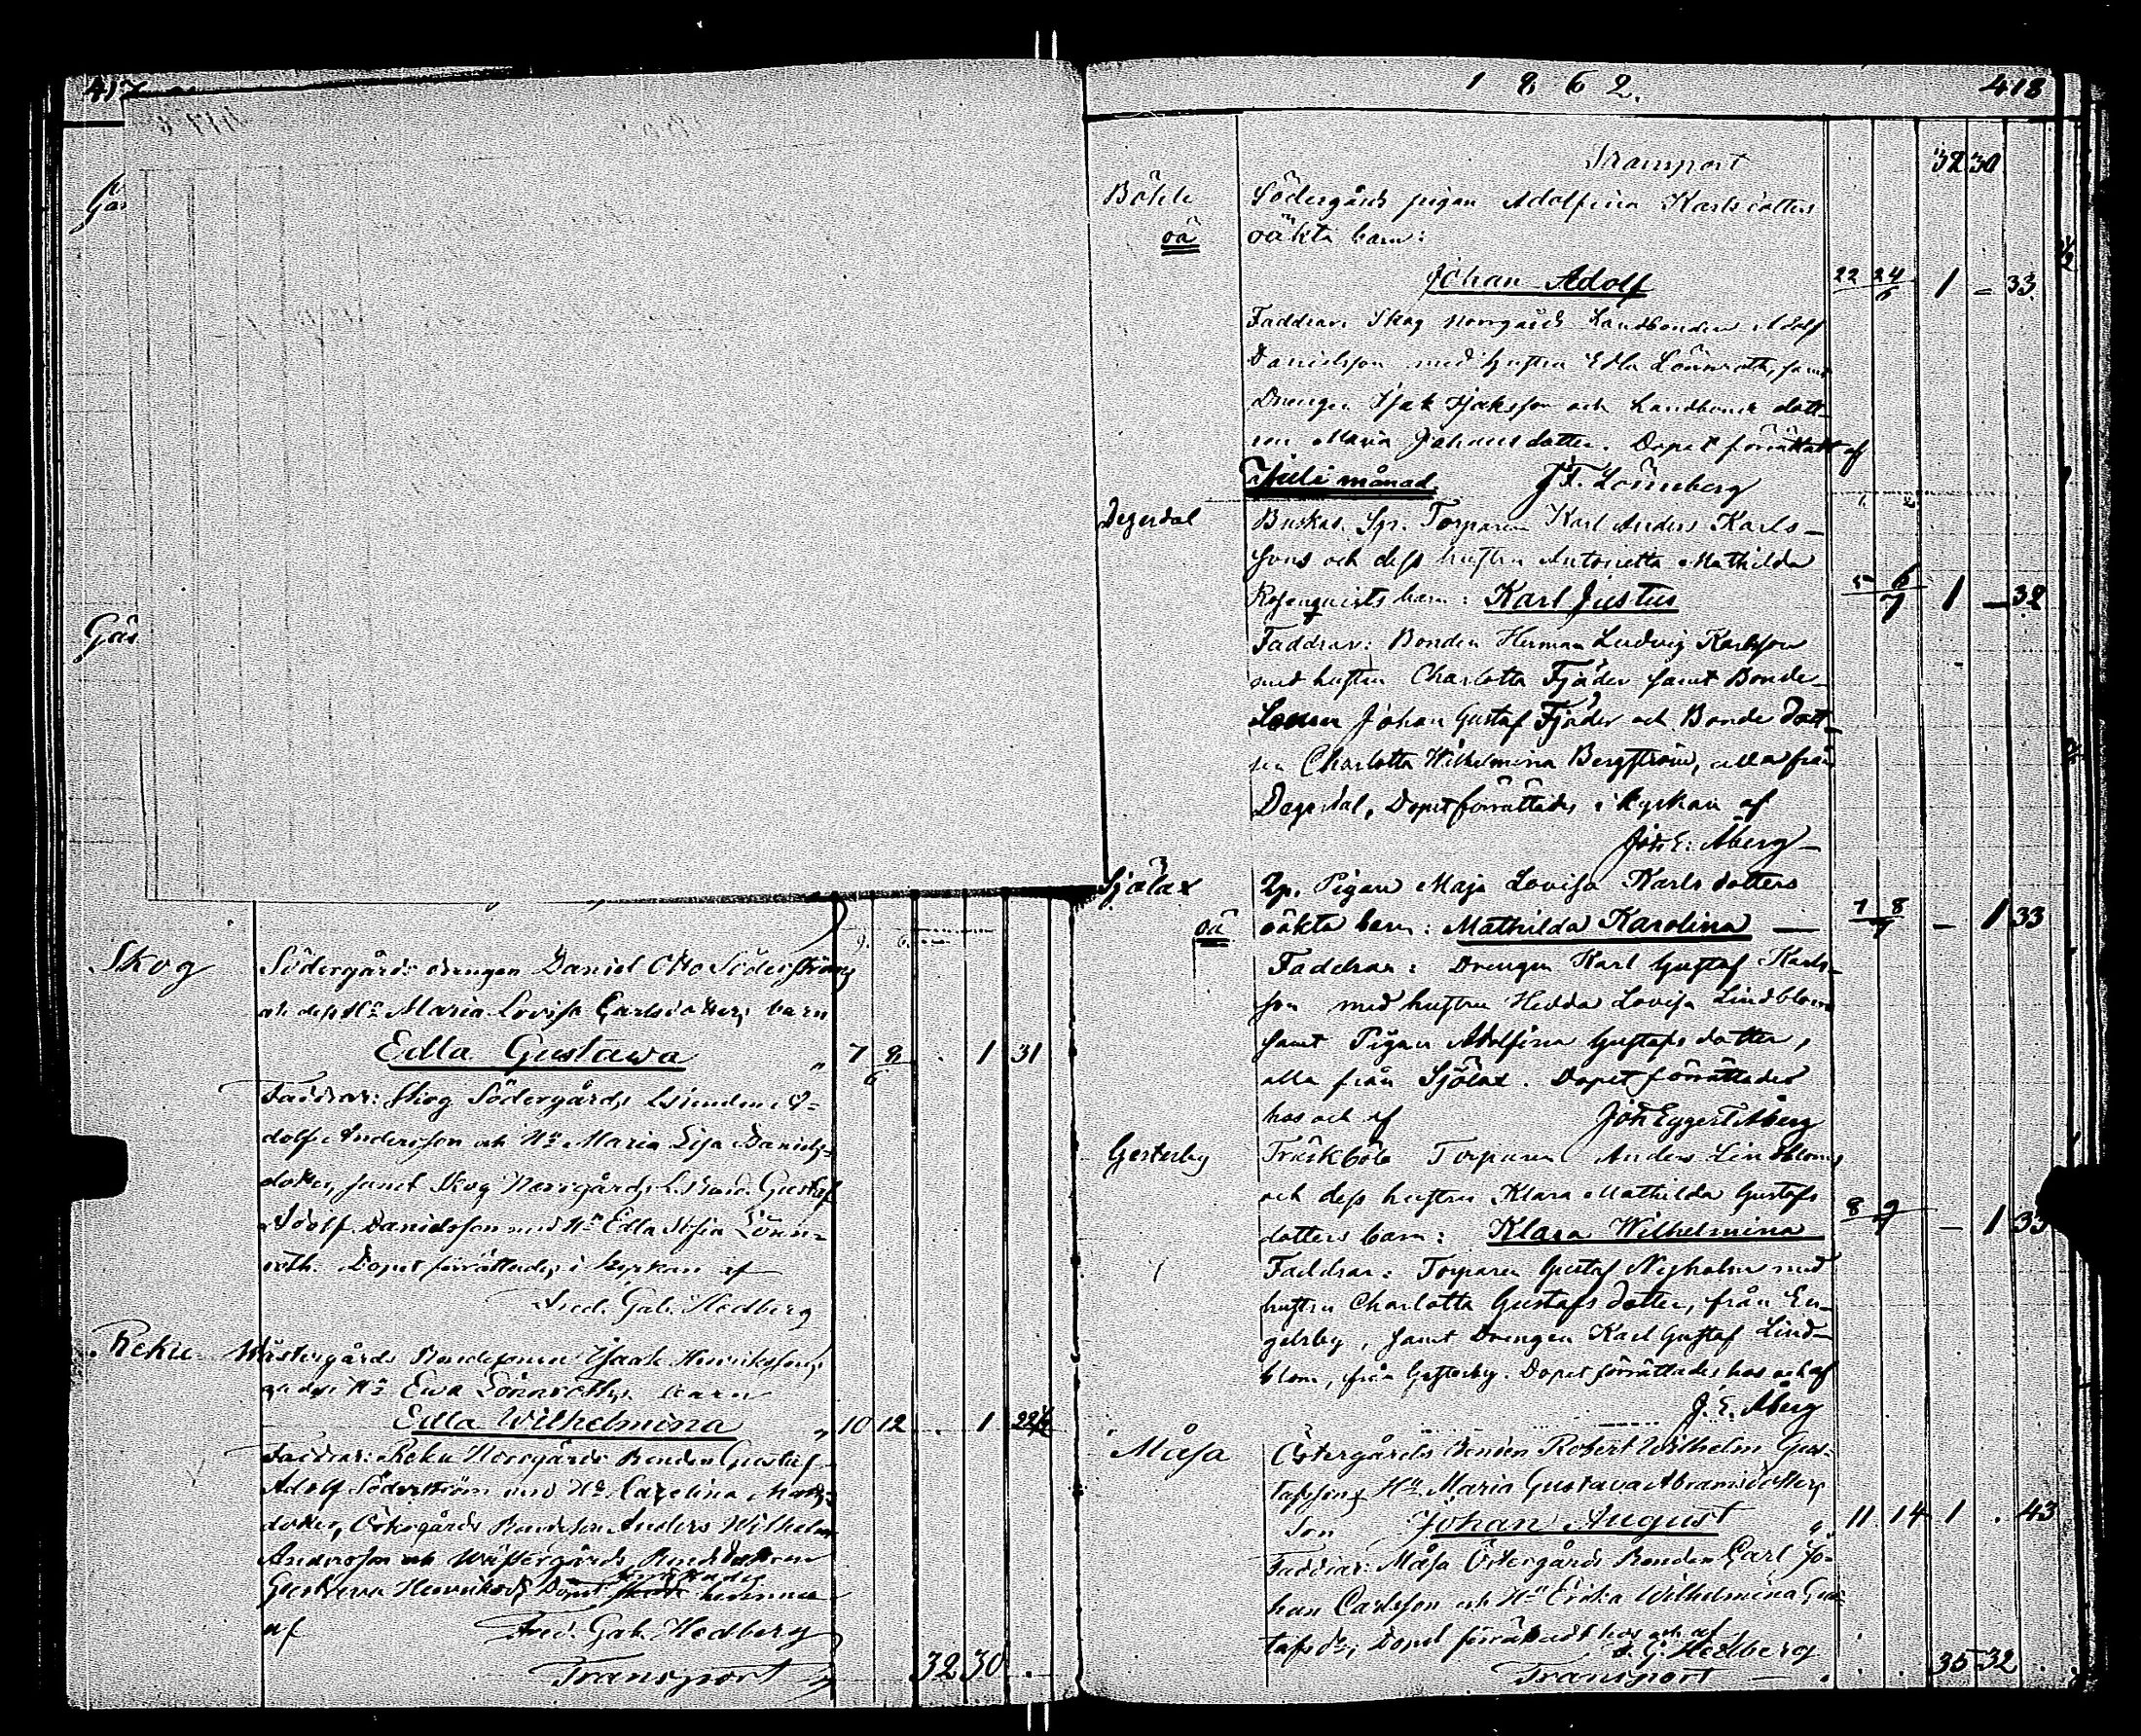 417
Gås
Gås
9. 6.
Skog
Södergårds drengen Daniel Otto Söderströms
och dess Hu Maria Lovisa Carlsdotters barn
Edla Gustava " 7 8/6 . 1 31
Faddrar: Skog Södergårds Lbonden A-
dolf Andersson och Hu Maria Lisa Daniels-
dotter, samt Skog Norrgårds L.Bond. Gustaf
Adolf Danielsson med Hu Edla Sofia Lönn-
roth. Dopet förrättades i kyrkan af
Fred. Gab. Hedberg
Reku
Wästergårds Bondesonen Isaak Henrikssons
och dess Hu Ewa Lönnroths barn
Edla Wilhelmina " 10 12 . 1 22½
Faddrar: Reku Norrgårds Bonden Gustaf
Adolf Söderström med Hu Carolina Mats-
dotter, Östergårds Bondeson Anders Wilhelm
Andersson och Wästergårds Bondedottren
Gustava Henriksd. Dopet förrättades hemma
af Fred. Gab. Hedberg
Transport 32 30 .
1862. 418
Transport 32 30
Böhle
Södergårds pigan Adolfina Karlsdotters
oä oäkta barn:
Johan Adolf 22 24/6 1 – 33
Faddrar: Skog Norrgårds Landbonden Adolf
Danielsson med hustru Edla Lönnroth, samt
Drengen Isak Isaksson och Landbonde dott-
ren Maria Johansdotter. Dopet förrättadt af
Juli månad. J F. Lönneberg
Degerdal
Buskas. Sp. Torparen Karl Anders Karls-
sons och dess hustru Antonetta Mathilda
Rosenqvists barn: Karl Justus 5 6/7 1 – 32
Faddrar: Bonden Herman Ludvig Karlsson
med hustru Charlotta Fjäder samt Bonde-
Sonen Johan Gustaf Fjäder och Bonde dott-
ren Charlotta Wilhelmina Bergström, alla från
Degerdal, Dopet förrättades i kyrkan af
Joh E: Åberg
Sjölax
Sp. Pigan Maja Lovisa Karls dotters
oä oäkta barn: Mathilda Karolina 7 8/7 – 1 33
Faddrar: Drengen Karl Gustaf Karls-
son med hustru Hedda Lovisa Lindblom
samt Pigan Adolfina Gustafs dotter,
alla från Sjölax. Dopet förrättades
hos och af Joh Eggert Åberg
Gesterby
Träskböle Torparen Anders Lindbloms
och dess hustru Klara Mathilda Gustafs
dotters barn: Klara Wilhelmina 8 9/7 – 1 33
Faddrar: Torparen Gustaf Nyholm med
hustru Charlotta Gustafs dotter, från En-
gelsby, samt Drengen Karl Gustaf Lind-
blom, från Gesterby. Dopet förrättades hos och af
J. E. Åberg
Måsa
Östergårds Bonden Robert Wilhelm Gus-
tafssons Hu Maria Gustava Abramsdotters
Son Johan August " 11 14 1 . 43
Faddrar: Måsa Östergårds Bonden Carl Jo-
han Carlsson och Hu Erika Wilhelmina Gus-
tafsdr, Dopet förrättadt hos och af
F. G. Hedberg
Transport 35 32